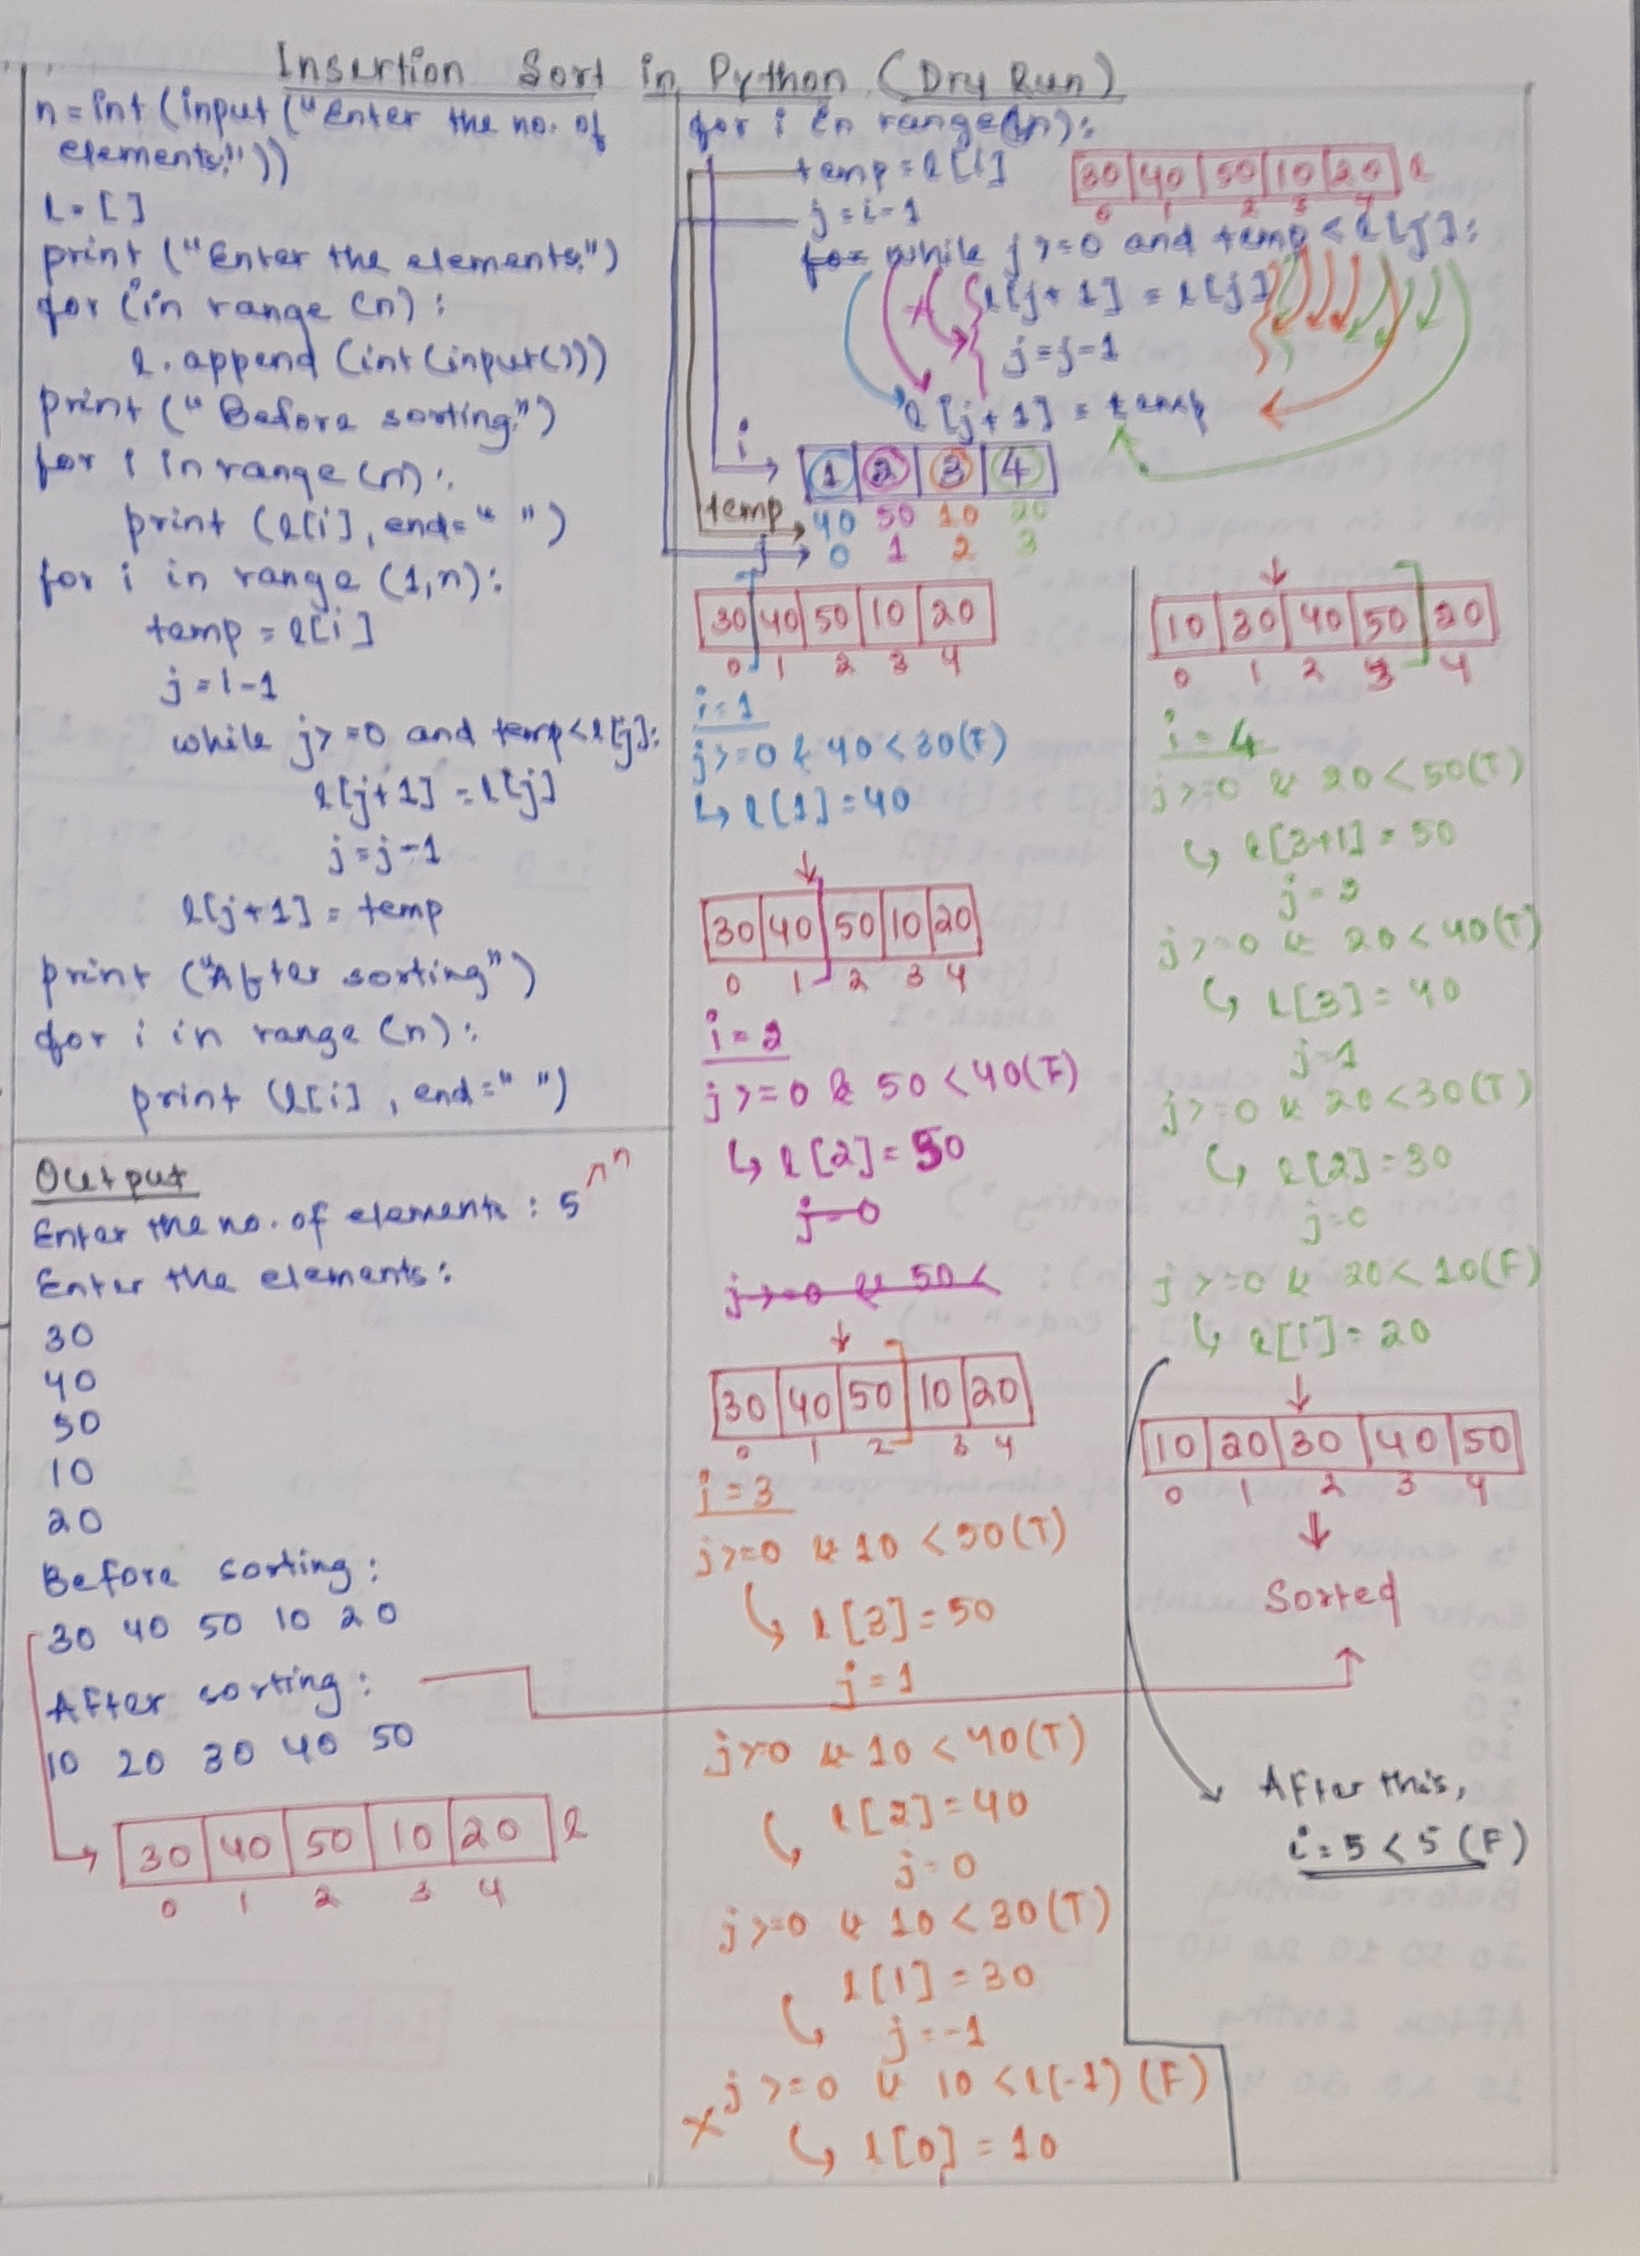 Insertion Sort in Python (Dry Run)
n = int (input ("Enter the no. of
elements:"))
l = [ ]
print ("Enter the elements:")
for i in range (n) :
l. append (int (input()))
print ("Before sorting:")
for i in range (n) :
print (l[i], end=" ")
for i in range (1,n):
temp = l[i]
j = i-1
while j>=0 and temp<l[j]:
l[j+1] = l[j]
j = j-1
l[j+1] = temp
print ("After sorting")
for i in range (n) :
print (l[i] , end=" ")
Output
Enter the no. of elements : 5
Enter the elements:
30
40
50
10
20
Before sorting :
30 40 50 10 20
After sorting :
10 20 30 40 50
30 40 50 10 20 l
0 1 2 3 4
for i in range(n):
temp = l[i]
j = i-1
30 40 50 10 20 l
0 1 2 3 4
for while j >=0 and temp < l[j]:
l[j+1] = l[j]
j = j-1
l[j+1] = temp
i
1 2 3 4
temp 40 50 10 20
j 0 1 2 3
30 40 50 10 20
0 1 2 3 4
i=1
j>=0 & 40<30(F)
↳ l[1]=40
30 40 50 10 20
0 1 2 3 4
i=2
j>=0 & 50<40(F)
↳ l[2]=50
j=0
j>=0 & 50<
30 40 50 10 20
0 1 2 3 4
i=3
j>=0 & 10<50(T)
↳ l[3]=50
j=1
j>0 & 10<40(T)
l[2]=40
j=0
j>=0 & 10<30(T)
l[1]=30
j=-1
x j>=0 & 10<l(-1) (F)
↳ l[0]=10
10 30 40 50 20
0 1 2 3 4
i=4
j>=0 & 20<50(T)
↳ l[3+1]=50
j=2
j>=0 & 20<40(T)
↳ l[3]=40
j=1
j>=0 & 20<30(T)
↳ l[2]=30
j=0
j>=0 & 20<10(F)
↳ l[1]=20
10 20 30 40 50
0 1 2 3 4
Sorted
After this,
i=5<5 (F)